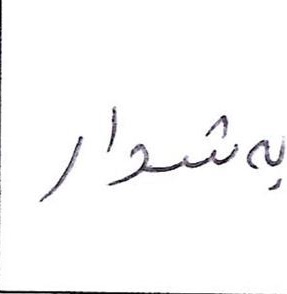 به‌شدار